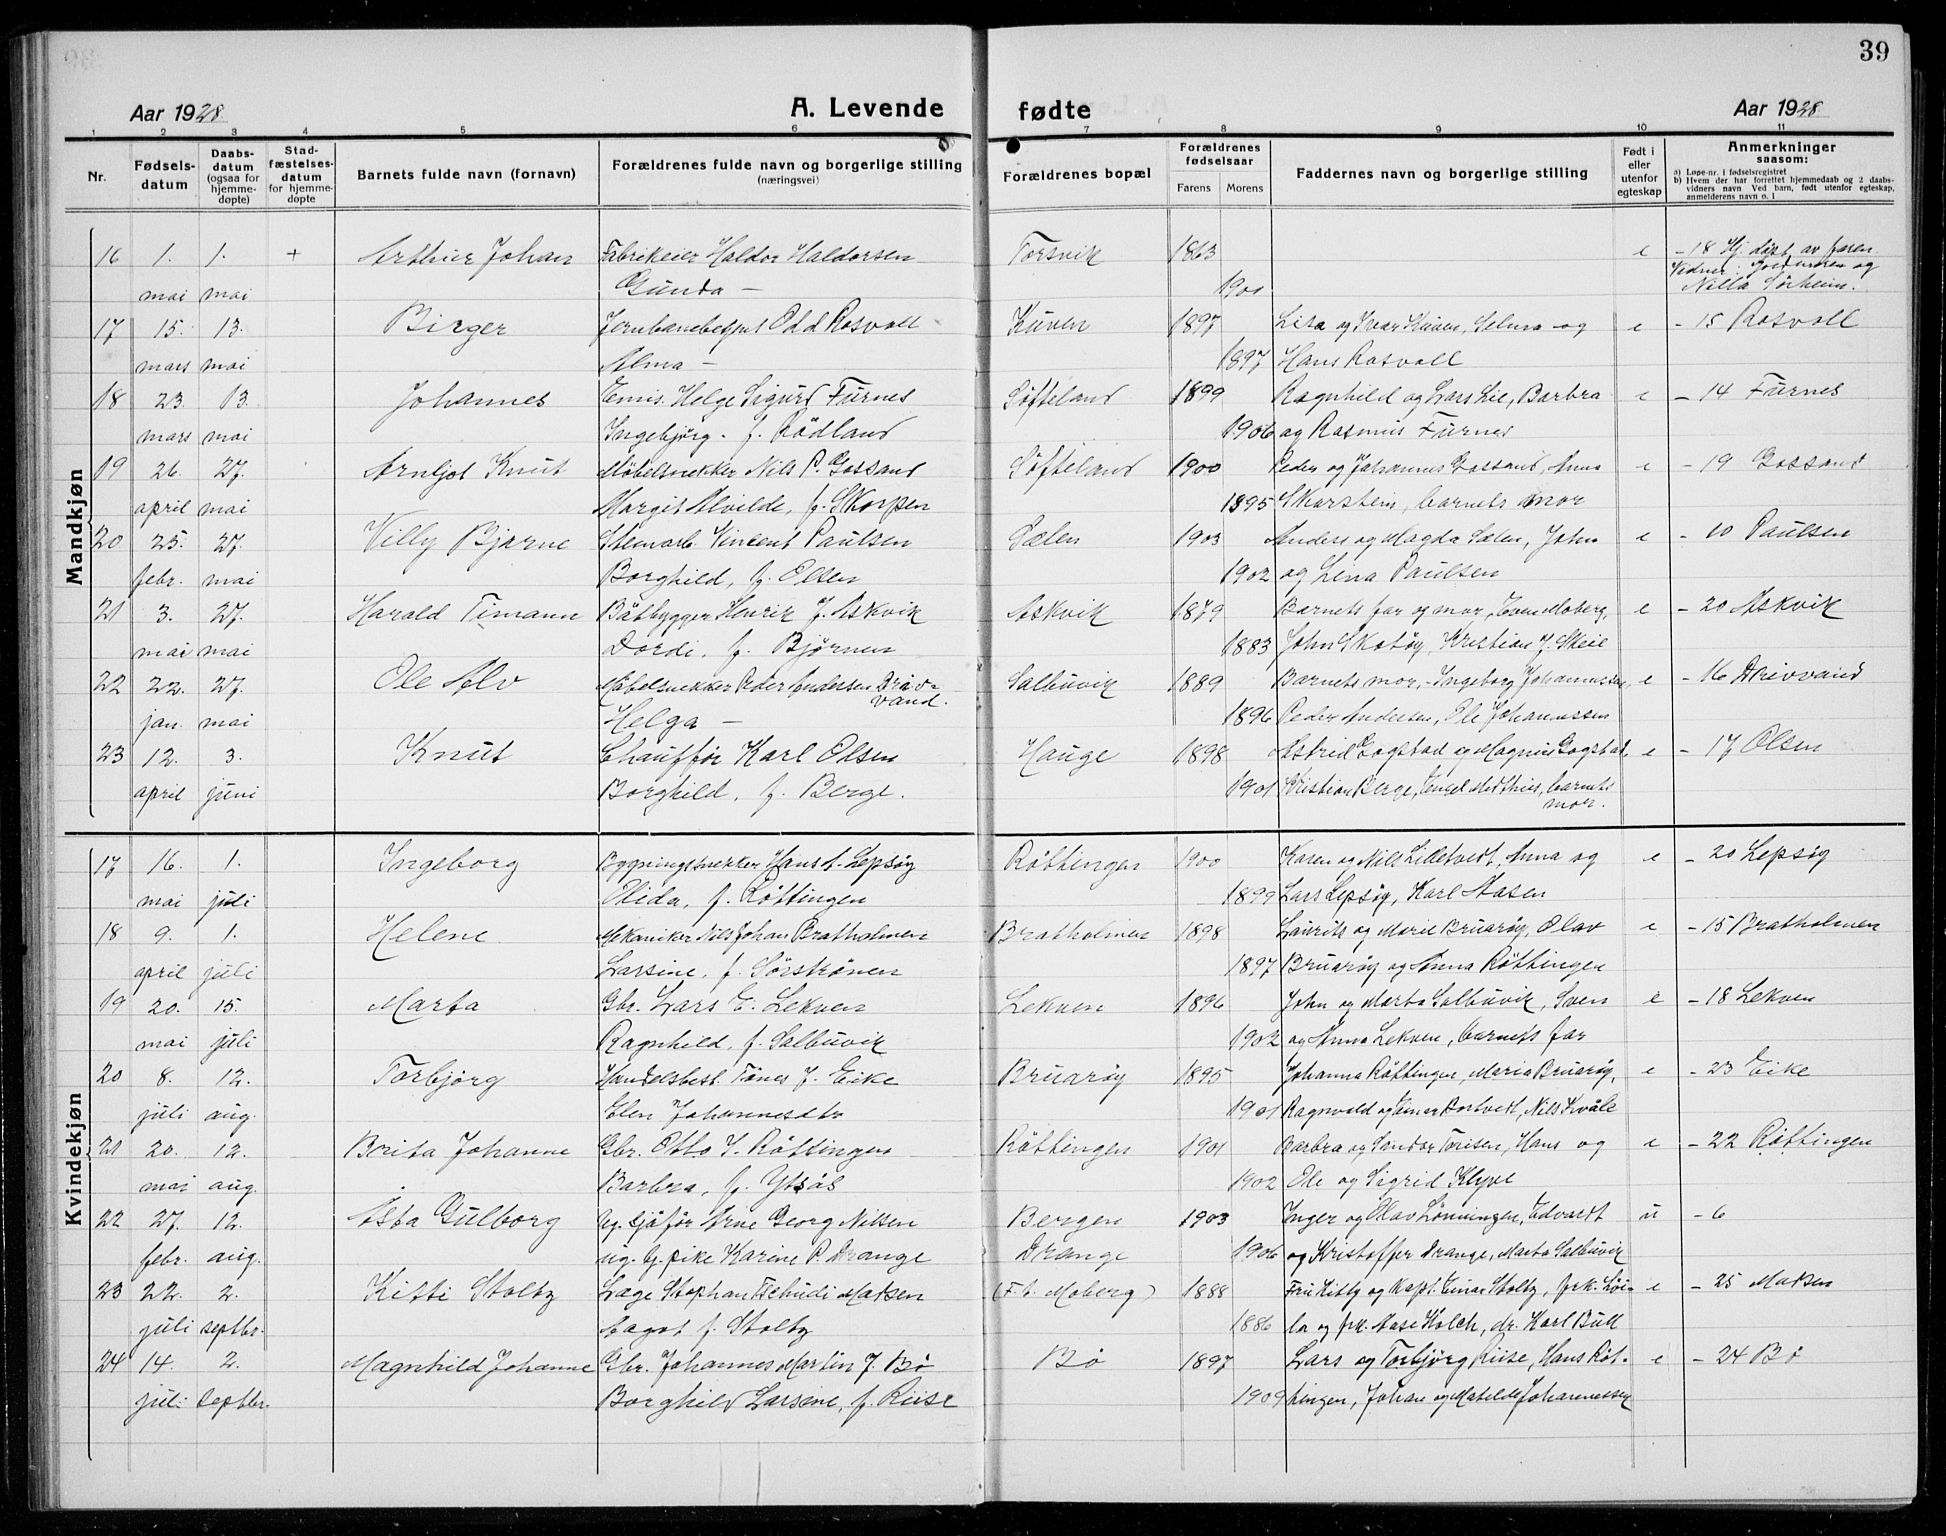 39
Aar 1928 A. Levende fødte Aar 1928
1 2 3 4 5 6 7 8 9 10 11
Nr. Fødsels-datum Daabs-datum (ogsaa for hjemme-døpte) Stad-fæstelses-datum for hjemme-døpte Barnets fulde navn (fornavn) Forældrenes fulde navn og borgerlige stilling (næringsvei) Forældrenes bopæl Forældrenes fødselsaar Farens Morens Faddernes navn og borgerlige stilling Født i eller utenfor egteskap Anmerkninger saasom:
a) Løpe-nr. i fødselsregistret
b) Hvem der har forrettet hjemmedaab og 2 daabs-vidners navn Ved barn, født utenfor egteskap, anmelderens navn o. l
Mandkjøn
16 1. 1. + Arthur Johan Fabrikeier Haldor Haldorsen Torsvik 1863 e - 18 Hj. døpt av faren
mai mai Gunda - 1900 Vidner: Jordmoren og Nilla Sørheim.
17 15. 13. Birger Jernbanebetjent Odd Rosvoll Kuven 1897 Lisa og Ivar Kuven, Selma og e - 15 Rosvoll
mars mai Alma - 1897 Hans Rosvoll
18 23. 13. Johannes Emis. Helge Sigurd Furnes Søfteland 1899 Ragnhild og Lars Lie, Barbra e - 14 Furnes
mars mai Ingebjørg. f. Rödland 1906 og Rasmus Furnes
19 26. 27. Arnljot Knut Møbelsnekker Nils P. Gossand Søfteland 1900 Peder og Johannes Gossand, Anna e - 19 Gossand
april mai Margit Alvilde, f. Skorpen 1895 Skarstein, barnets mor
20 25. 27. Villy Bjarne Stenarb. Vincent Paulsen Sælen 1903 Anders og Magda Sælen, John e - 10 Paulsen
febr. mai Borghild, f. Olsen 1902 og Lena Paulsen
21 3. 27. Harald Timann Båtbygger Henrik J. Askvik Askvik 1879 Barnets far og mor, Even Moberg, e - 20 Askvik
mai mai Dordi, f. Björnen 1883 John Skotøy, Kristian J. Skeie
22 22. 27. Ole Alv Møbelsnekker Peder Andersen Drivvand. Salbuvik 1889 Barnets mor, Ingeborg Johannessen, e - 16 Drivvand
jan. mai Helga - 1896 Peder Andersen, Ole Johannessen
23 12. 3. Knut Chauffør Karl Olsen Hauge 1898 Astrid Gogstad og Magnus Gogstad, e - 17 Olsen
april juni Borghild, f. Berge. 1901 Kristian Berge, Engel Mitthies, barnets mor.
Kvindekjøn
17 16. 1. Ingeborg Bygningsnekker Hans A. Lepsöy Røttingen 1900 Karen og Nils Lilletvedt, Anna og e - 20 Lepsöy
mai juli Olida, f. Røttingen 1899 Lars Lepsöy, Karl Aasen
18 9. 1. Helene Mekaniker Nils Johan Bratholmen Bratholmen 1898 Laurits og Marie Bruarøy, Olav e - 15 Bratholmen
april juli Larsine, f. Sörströnen 1897 Bruarøy og Anna Röttingen
19 20. 15. Marta Gbr. Lars E. Lekven Lekven 1896 John og Marta Salbuvik, Sven e - 18 Lekven
mai juli Ragnhild, f. Salbuvik 1902 og Anna Lekven, barnets far
20 8. 12. Torbjörg Handelsbest. Tönes J. Eike Bruarøy 1895 Johanna Røttingen, Maria Bruarøy, e - 23 Eike
juli aug. Elen Johannesdtr 1901 Ragnvald og Einar Bortvedt, Nils Kvåle
21 20. 12. Borita Johanne Gbr. Otto J. Röttingen Röttingen 1901 Barbra og Sandor Torisen, Hans og e - 22 Røttingen
mai aug. Barbra, f. Ytsøs 1902 Ole og Sigrid Klyve
22 27. 12. Asta Gulborg Ug. sjåför Arne Georg Nilsen Bergen 1903 Inger og Olav Lönningen, Edvardt u - 6
febr. aug. ug. G. pike Karine P. Drange Drange 1906 og Kristoffer Drange, Marta Salbuvik
23 22. 2. Kitti Stolty Læge Stephan Tschudi Madsen (F. t. Moberg) 1888 Fru Kitty og Kapt. Einar Stolty, frk. e - 25 Madsen
juli septbr. Aagot f. Stolty 1886 og frk. Aase Holch, dr. Karl Bull
24 14. 2. Magnhild Johanne Gbr. Johannes Martin J. Bø Bø 1897 Lars og Torbjörg Riise, Hans Røt- e - 24 Bø
juli septbr. Borghild Larsine, f. Riise 1909 tingen, Johan og Matilde Johannessen